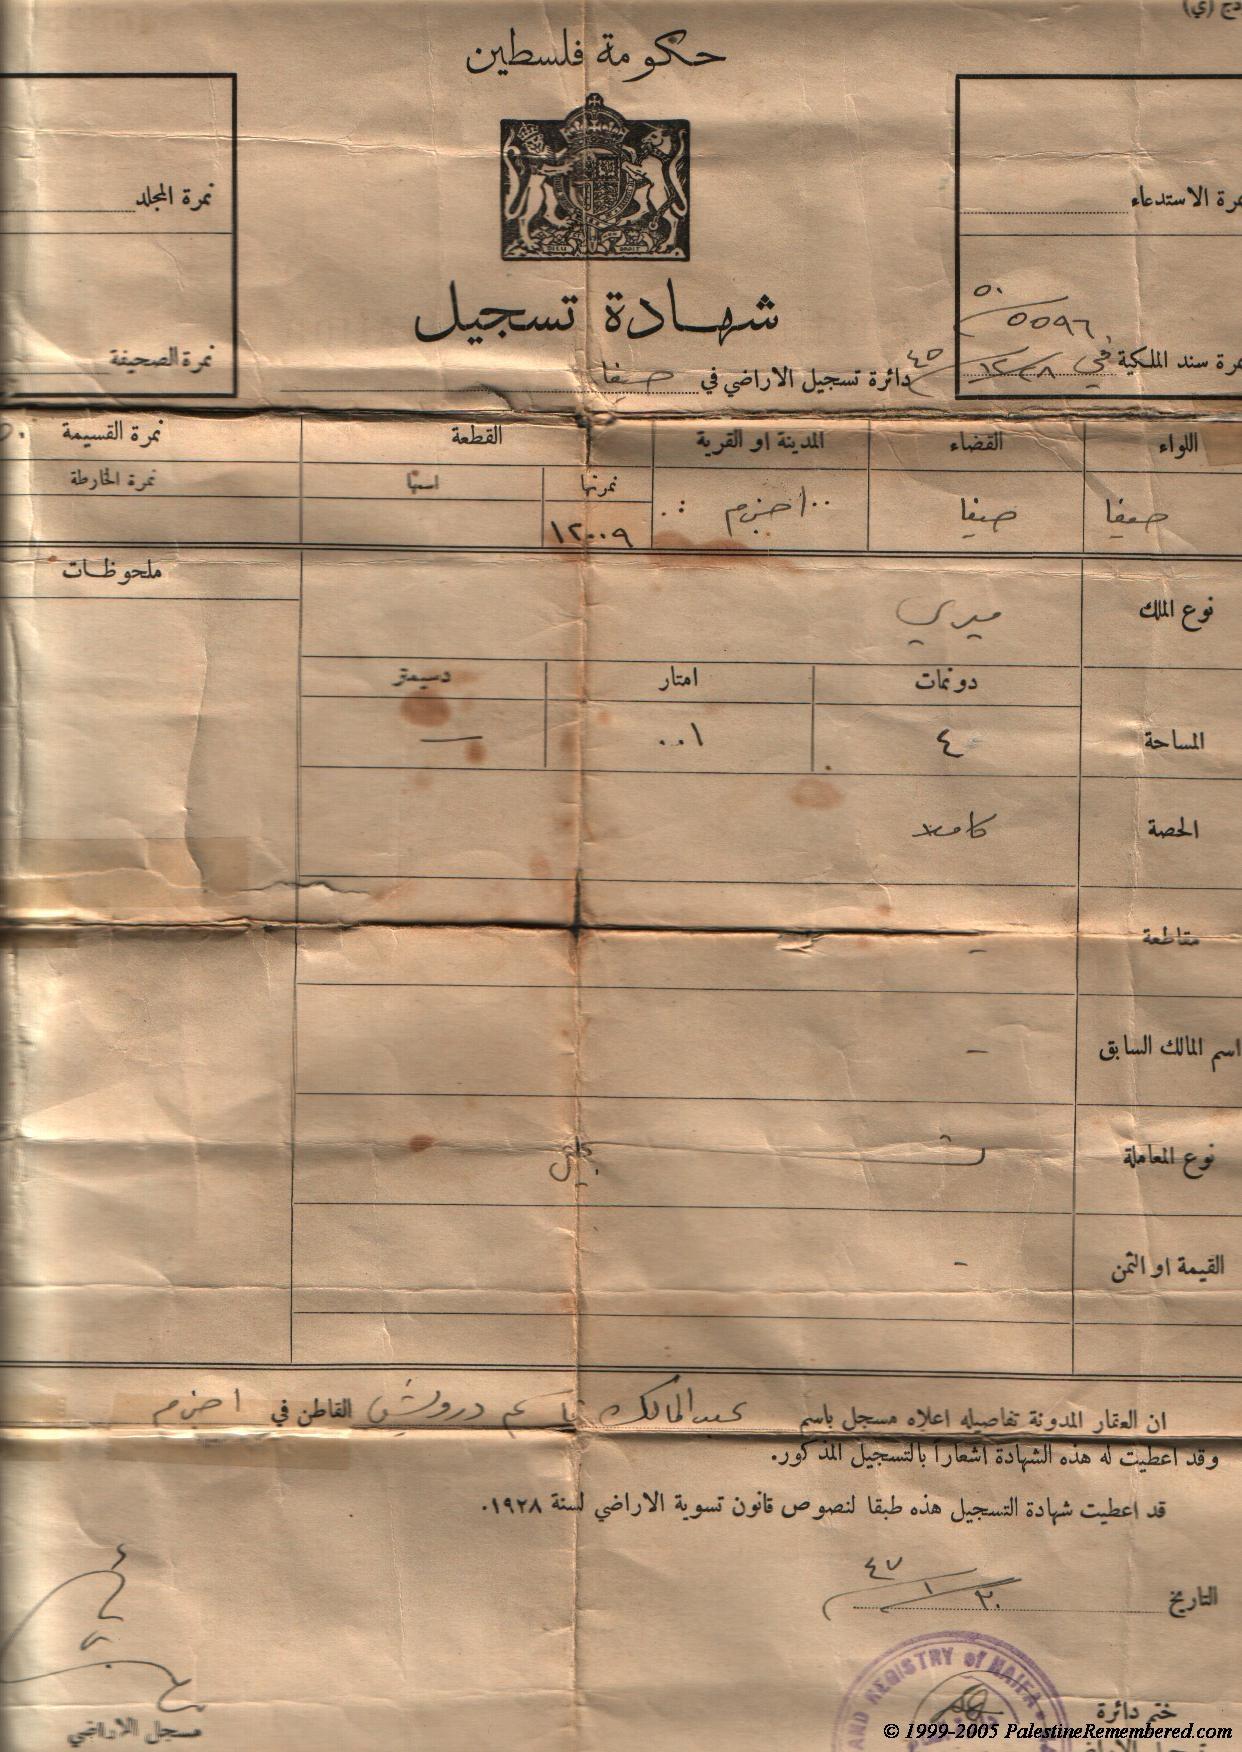 حكومة فلسطين
نمرة المجلد
نمرة الاستدعاء
شهادة تسجيل
٥٠
٥٥٩٦
نمرة الصحيفة
دائرة تسجيل الاراضي في حيفا
نمرة سند الملكية
في
اللواء
القضاء
المدينة او القرية
القطعة
نمرة القسيمة
نمرتها
اسمها
نمرة الخارطة
حيفا
حيفا
اجزم
١٢٠٠٩
ملحوظات
نوع الملك
ميري
دونمات
امتار
دسيمتر
المساحة
٤
٠٠١
—
الحصة
كاملا
مقاطعة
-
اسم المالك السابق
-
نوع المعاملة
القيمة او الثمن
-
ان العقار المدونة تفاصيله اعلاه مسجل باسم عبد المالك قاسم درويش القاطن في اجزم
وقد اعطيت له هذه الشهادة اشعاراً بالتسجيل المذكور.
قد اعطيت شهادة التسجيل هذه طبقا لنصوص قانون تسوية الاراضي لسنة ١٩٢٨.
التاريخ ٣٠/١/٤٧
AND REGISTRY of HAIFA
ختم دائرة
مسجل الاراضي
© 1999-2005 PalestineRemembered.com